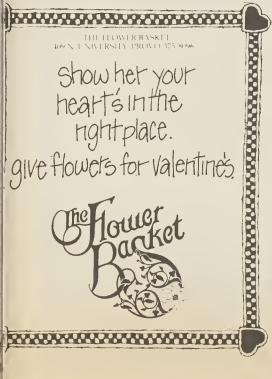 THE FLOWER BASKET
N. UNIVERSITY, PROVO 375
show her your
heart's in the
right place.
give flowers for valentine's.
The Flower
Basket